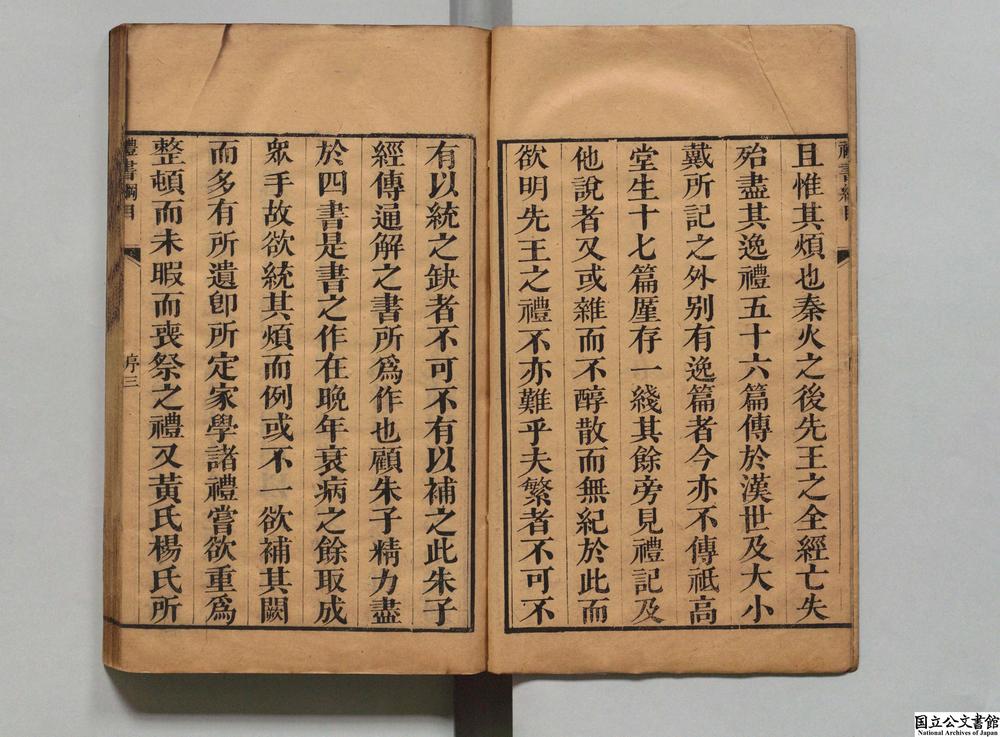 且惟其煩也秦火之後先王之全經亡失
殆盡其逸禮五十六篇傳於漢世及大小
戴所記之外别有逸篇者今亦不傳祗高
堂生十七篇厪存一綫其餘旁見禮記及
他說者又或雜而不醇散而無紀於此而
欲明先王之禮不亦難乎夫繁者不可不
有以統之缺者不可不有以補之此朱子
經傳通解之書所爲作也顧朱子精力盡
於四書是書之作在晚年衰病之餘取成
眾手故欲統其煩而例或不一欲補其闕
而多有所遺卽所定家學諸禮嘗欲重爲
整頓而未暇而喪祭之禮又黃氏楊氏所
禮書綱目
序三
国立公文書館
National Archives of Japan